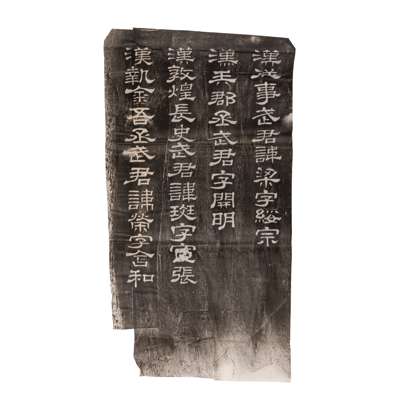 漢從事武君諱梁字綏宗
漢吳郡丞武君字開明
漢敦煌長史武君諱斑字宣張
漢執金吾丞武君諱榮字含和